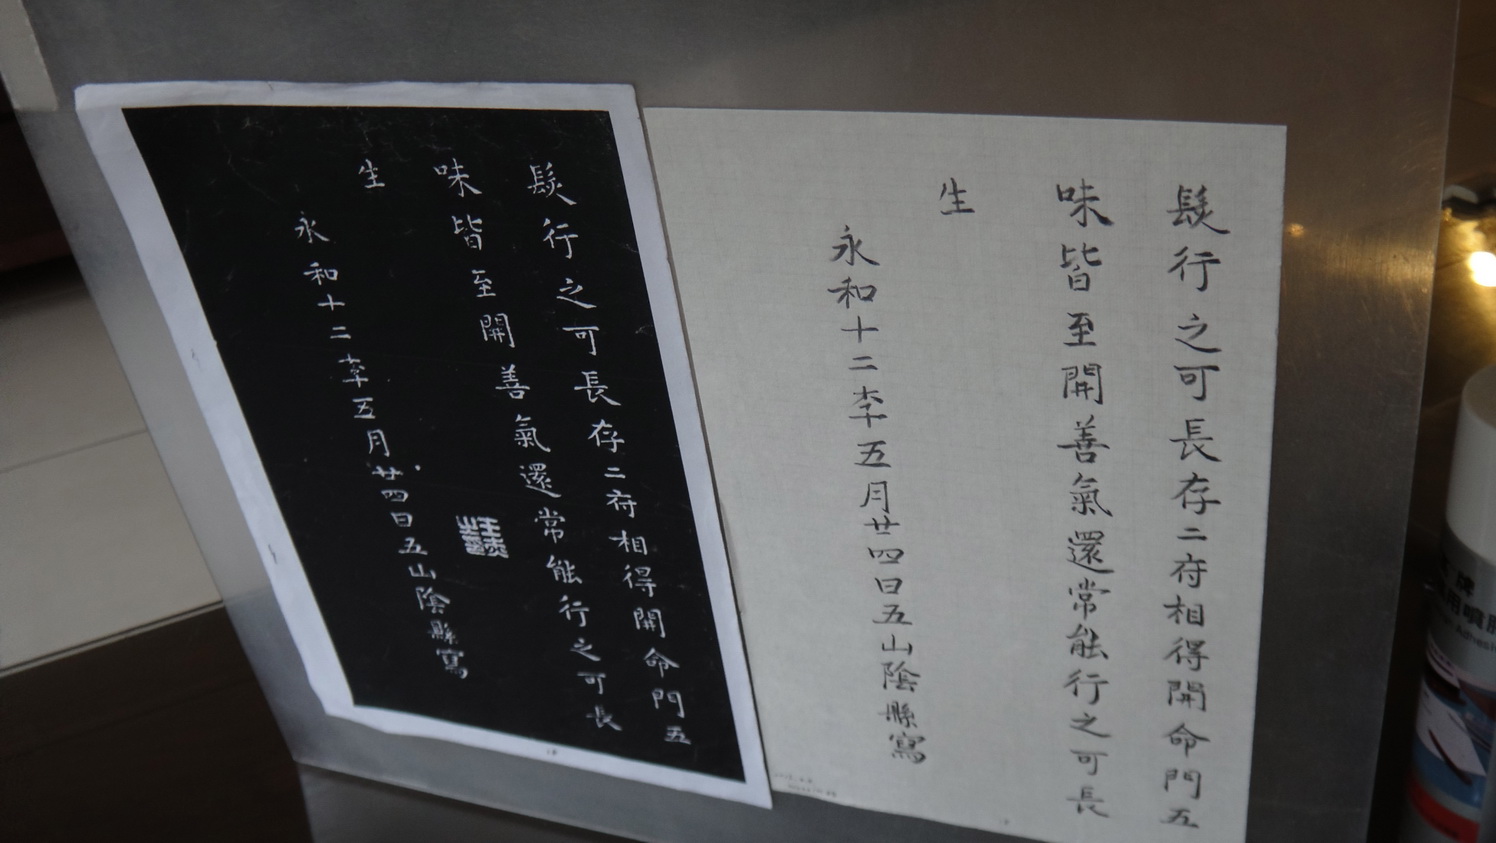 髮行之可長存二府相得開命門五
味皆至開善氣還常能行之可長
生
永和十二季五月廿四日五山陰縣寫
髮行之可長存二府相得開命門五
味皆至開善氣還常能行之可長
生
永和十二季五月廿四日五山陰縣寫